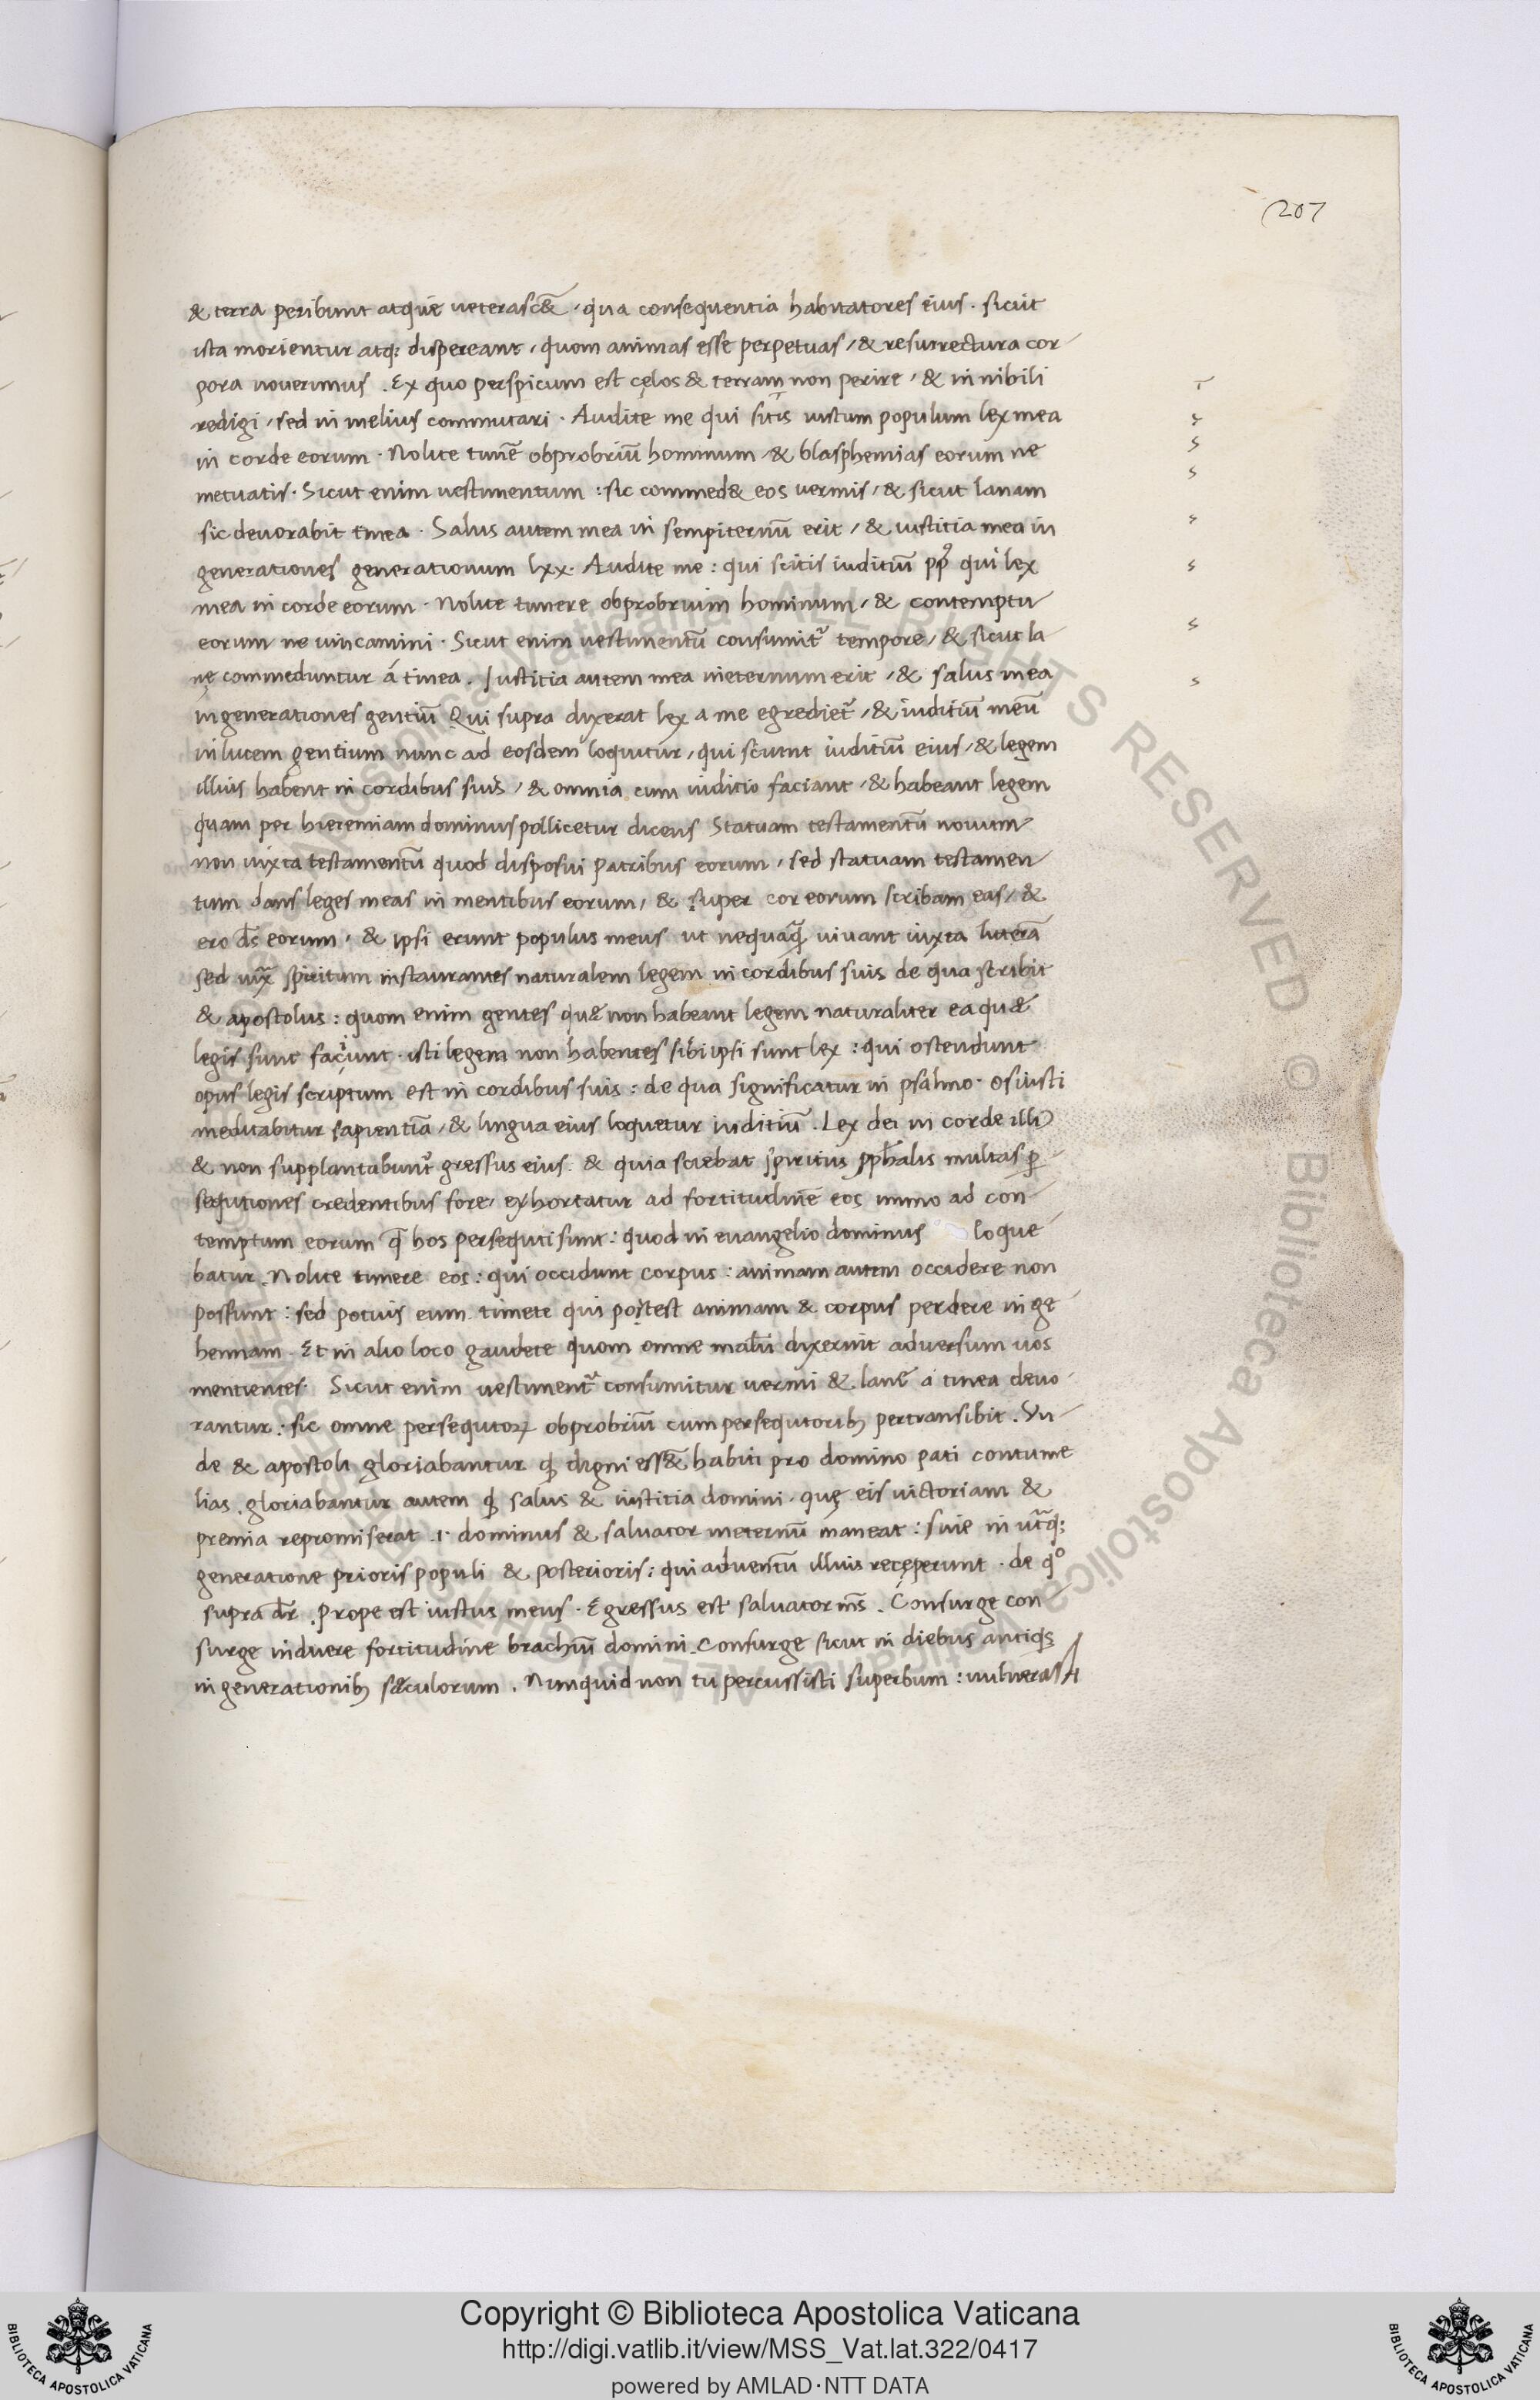 207
& terra peribunt atque veterasc&̄ / qua consequentia habitatores eius . sicut
ista morientur atq; dispereant / quom animas esse perpetuas / & resurrectura cor
pora noverimus . Ex quo perspicum est cęlos & terram non perire / & in nihili
redigi / sed in melius commutari . Audite me qui sitis iustum populum lex mea
in corde eorum . Nolite timē obprobriū hominum / & blasphemias eorum ne
metuatis . Sicut enim vestimentum : sic commed& eos vermis / & sicut lanam
sic devorabit tinea . Salus autem mea in sempiternū erit / & iustitia mea in
generationes generationum lxx . Audite me : qui scitis iuditiū pp̄ qui lex
mea in corde eorum . Nolite timere obprobrium hominum / & contemptu
eorum ne vincamini . Sicut enim vestimentū consumit᷑ tempore / & sicut la
nę commeduntur á tinea . Iustitia autem mea ineternum erit / & salus mea
in generationes gentiū Qui supra dixerat lex a me egrediet᷑ / & iuditiū meū
in lucem gentium nunc ad eosdem loquitur / qui sciunt iuditiū eius / & legem
illius habent in cordibus suis / & omnia cum iuditio faciant / & habeant legem
quam per hieremiam dominus pollicetur dicens Statuam testamentū novum
non iuxta testamentū quod disposui patribus eorum / sed statuam testamen
tum dans leges meas in mentibus eorum / & super cor eorum scribam eas / &
ero ds̄ eorum / & ipsi erunt populus meus ut nequaq̄ vivant iuxta litterā
sed iux̄ spiritum instaurantes naturalem legem in cordibus suis de qua scribit
& apostolus : quom enim gentes quæ non habeant legem naturaliter ea quæ
legis sunt faciunt . isti legem non habentes sibi ipsi sunt lex : qui ostendunt
opus legis scriptum est in cordibus suis : de qua significatur in psalmo . os iusti
meditabitur sapientiā / & lingua eius loquetur iuditiū . Lex dei in corde illi⁹
& non supplantabunt᷑ gressus eius . & quia sciebat spiritus pph̄alis multas ꝑ
sequtiones credentibus fore / exhortatur ad fortitudinē eos immo ad con
temptum eorum q̄ hos persequti sunt : quod in evangelio dominus loque
batur . Nolite timere eos : qui occidunt corpus : animam autem occidere non
possunt : sed potius eum timete qui potest animam & corpus perdere in ge
hennam . Et in alio loco gaudete quom omne malū dixerint adversum vos
mentientes . Sicut enim vestiment᷑ consumitur vermi & lanę á tinea devo
rantur : sic omne persequtoꝝ obprobriū cum persequtorib; pertransibit . Un
de & apostoli gloriabantur q̄ digni ess&̄ habiti pro domino pati contume
lias . gloriabantur autem q̄ salus & iustitia domini . quę eis victoriam &
premia repromiserat .i. dominus & salvator ineternū maneat : sive in ut᷑q;
generatione prioris populi & posterioris : qui adventū illius receperunt . de qͦ
supra dr̄ . Prope est iustus meus . Egressus est salvator ms̄ . Consurge con
surge induere fortitudine brachiū domini . Consurge sicut in diebus antiqs
in generationib; sæculorum . Numquid non tu percussisti superbum : vulneras
Copyright © Biblioteca Apostolica Vaticana
http://digi.vatlib.it/view/MSS_Vat.lat.322/0417
powered by AMLAD·NTT DATA
BIBLIOTECA APOSTOLICA VATICANA
BIBLIOTECA APOSTOLICA VATICANA